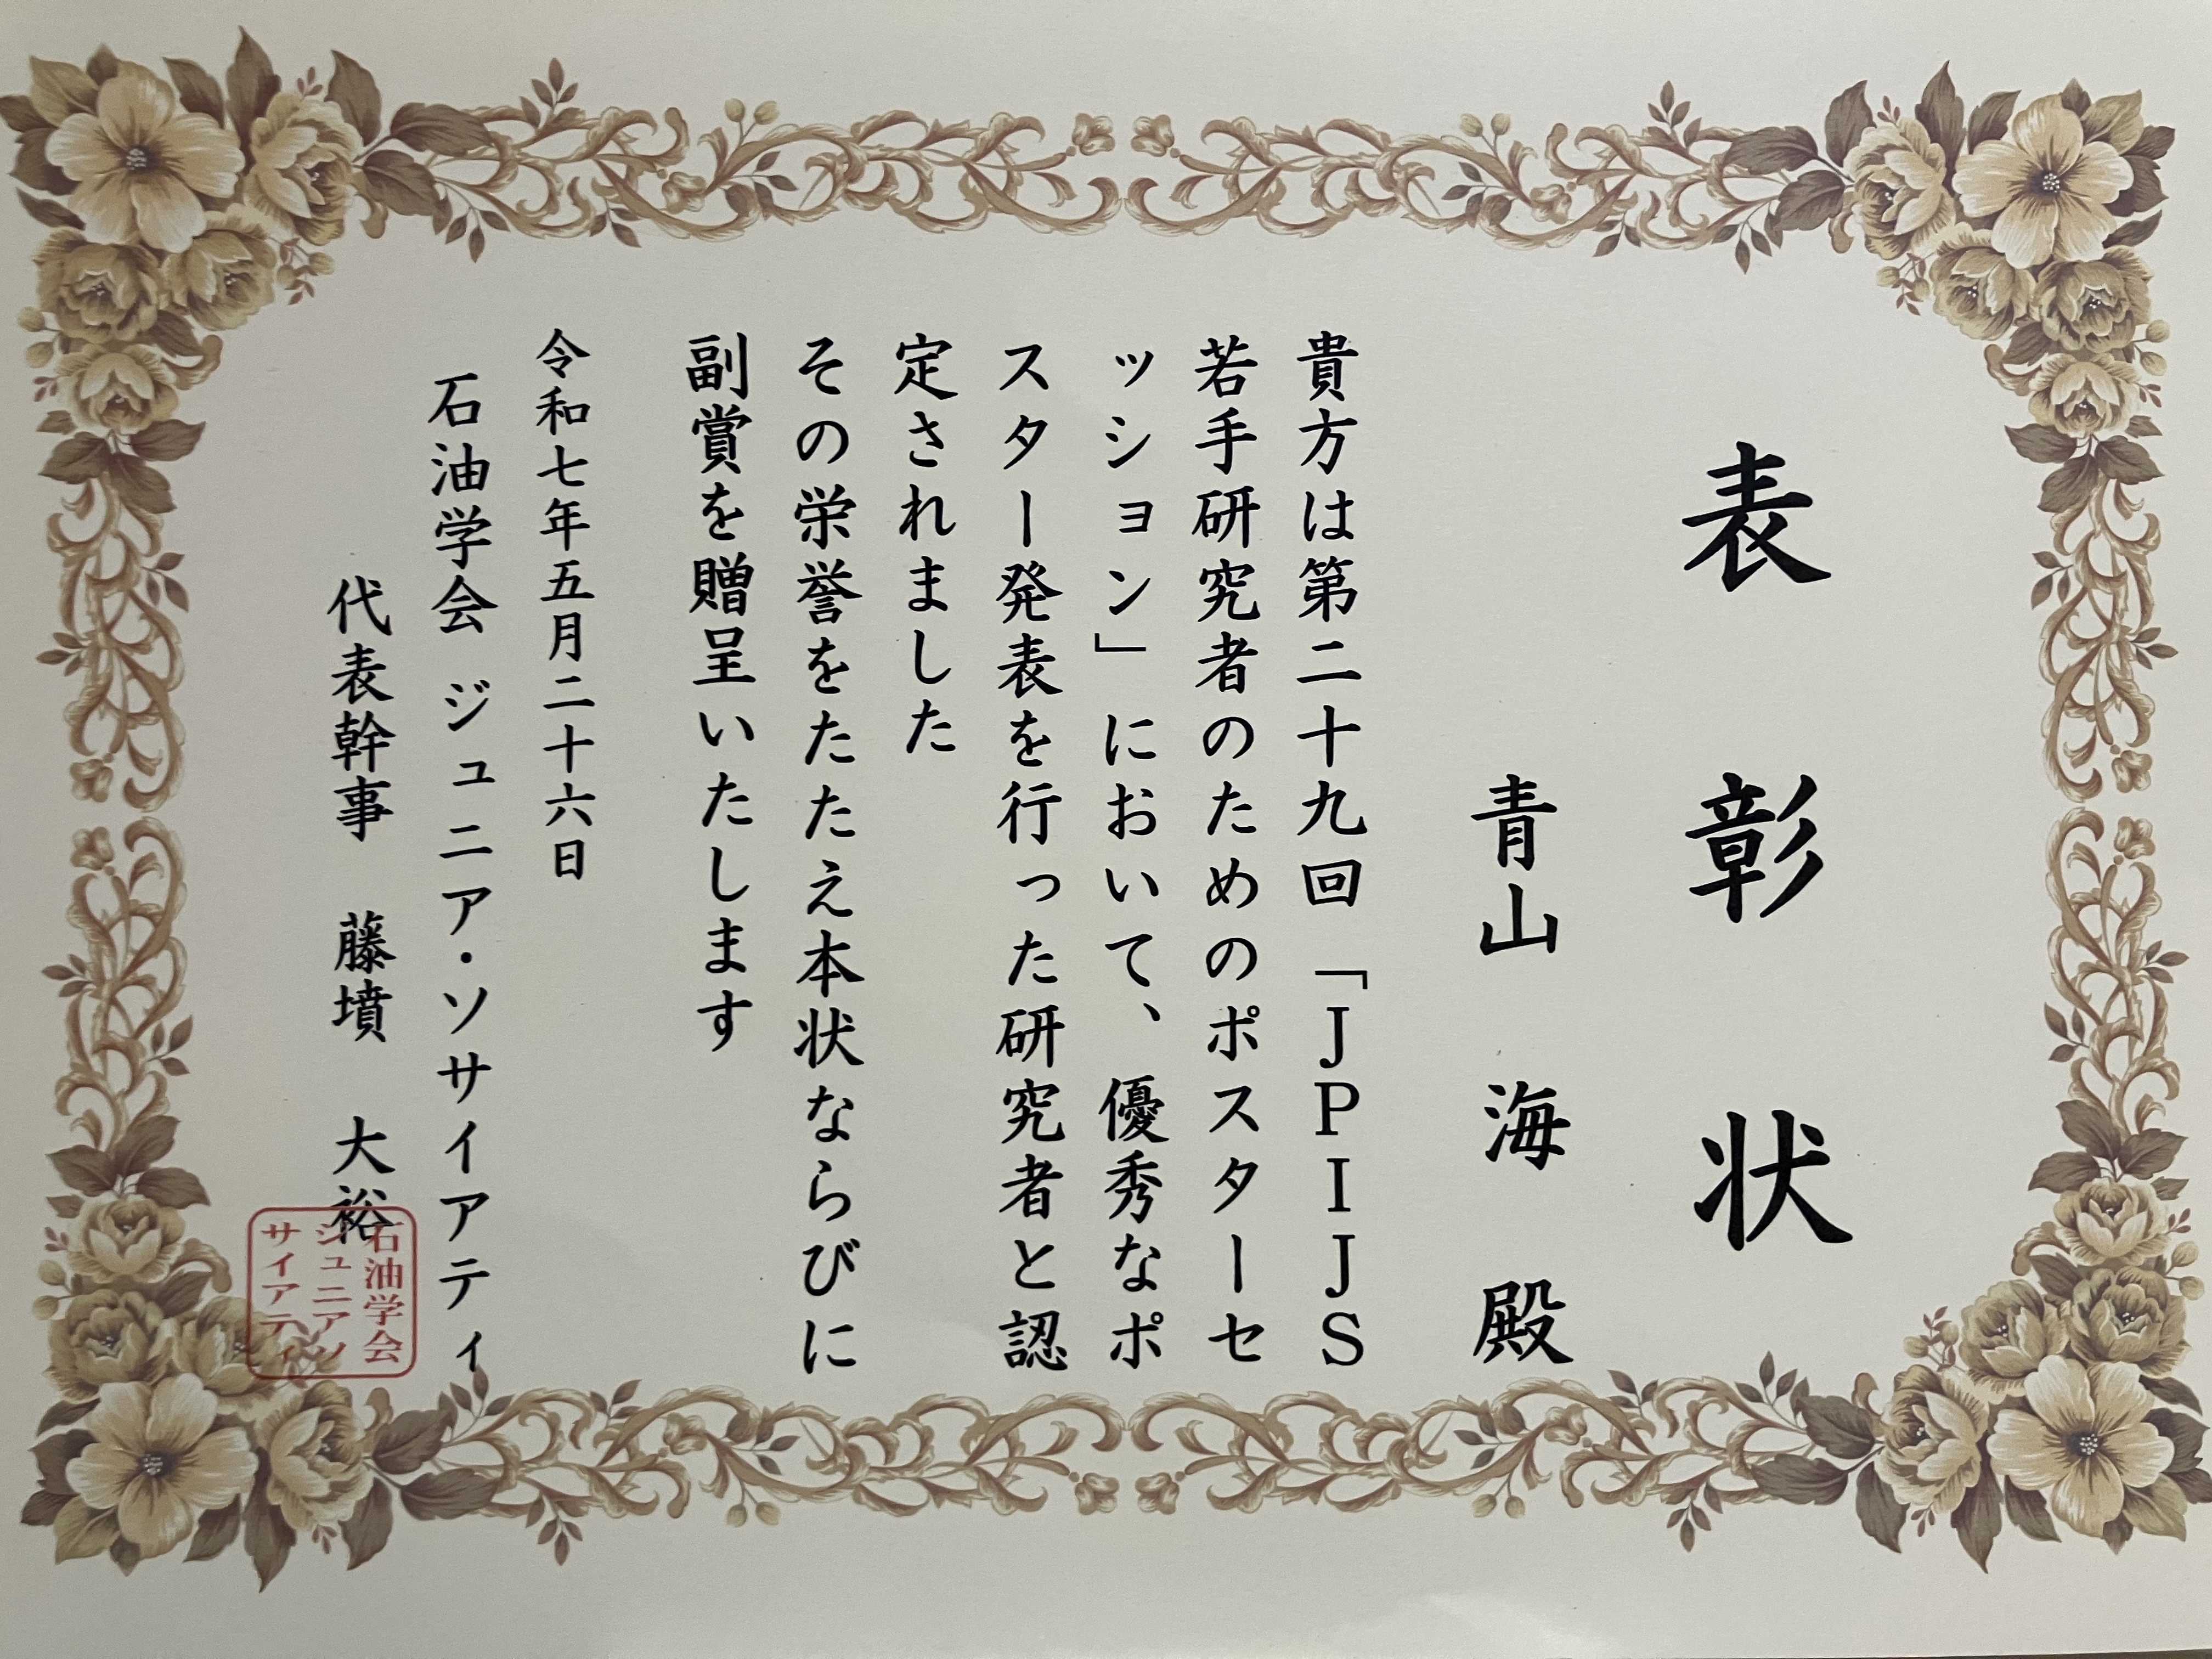 表彰状
青山 海 殿
貴方は第二十九回「JPIJS
若手研究者のためのポスターセ
ッション」において、優秀なポ
スター発表を行った研究者と認
定されました
その栄誉をたたえ本状ならびに
副賞を贈呈いたします
令和七年五月二十六日
石油学会 ジュニア・ソサイアティ
代表幹事 藤墳 大裕
石油学会
ジュニアソ
サイアティ